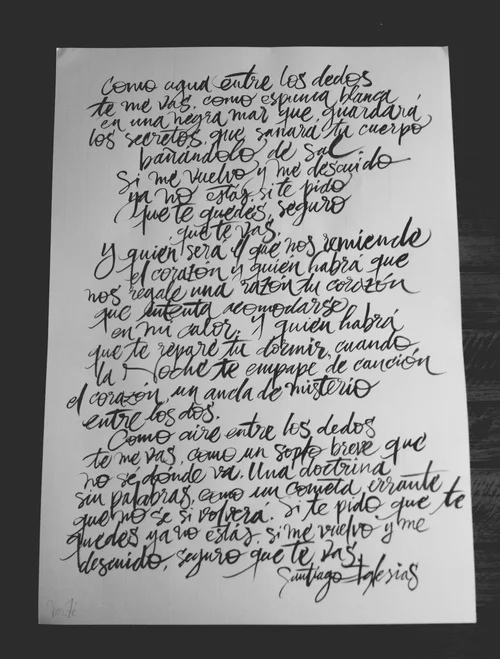 Como agua entre los dedos
te me vas, como espuma blanca
en una negra mar que guardará
los secretos, que sanará tu cuerpo
bañándolo de sal.
Si me vuelvo y me descuido
ya no estás, si te pido
que te quedes, seguro
que te vas.
Y quién será el que nos remiende
el corazón y quién habrá que
nos regale una razón tu corazón
que intenta acomodarse
en mi calor. Y quién habrá
que te repare tu dormir, cuando
la Noche te empape de canción
el corazón, un ancla de misterio
entre los dos.
Como aire entre los dedos
te me vas, como un soplo breve que
no sé donde va. Una doctrina
sin palabras, como un cometa errante
que no se si volverá. Si te pido que te
quedes ya no estás, si me vuelvo y me
descuido, seguro que te vas.
Santiago Iglesias